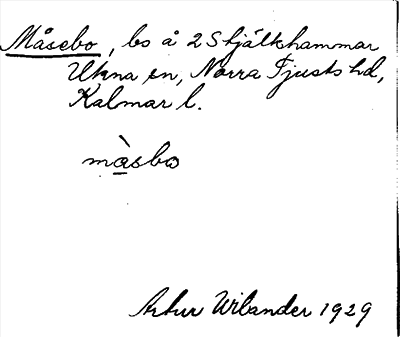 Måsebo, bs å 2 Stjälkhammar
Ukna sn, Norra Tjusts hd,
Kalmar l.
màsbo
Artur Wilander 1929